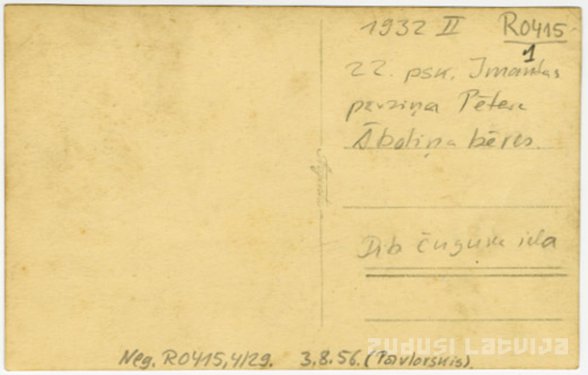 1932 II R0415
1
22. psk. Imantas
pārziņa Pētera
Āboliņa bēres.
Dib čuguna iela
Neg. R0415,4/29. 3.8.56. (Pavlovskis).
zudusi Latvija